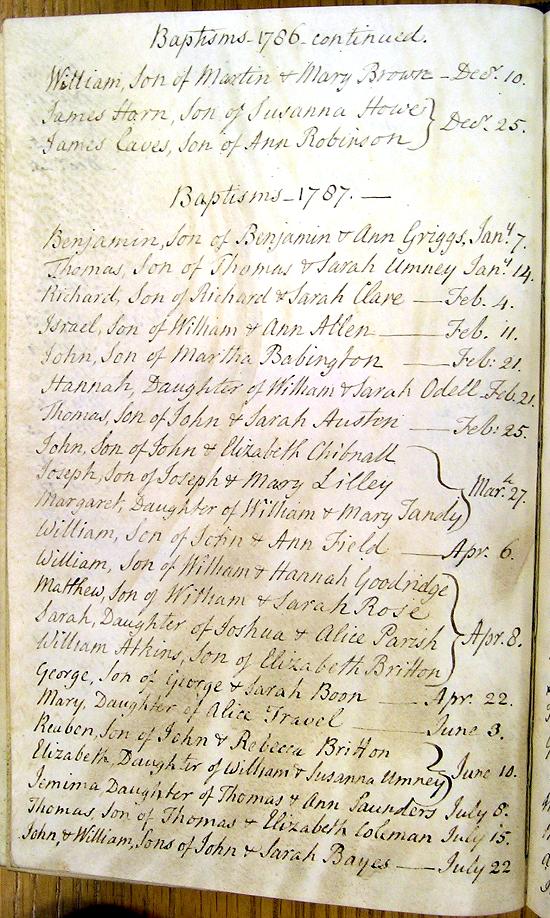 Baptisms - 1786 - continued.
William, Son of Martin & Mary Brown - Decr. 10.
James Horn, Son of Susanna Howe
James Eaves, Son of Ann Robinson } Decr. 25.
Baptisms - 1787. —
Benjamin, Son of Benjamin & Ann Griggs, Jany. 7.
Thomas, Son of Thomas & Sarah Umney Jany. 14.
Richard, Son of Richard & Sarah Clare — Feb. 4.
Israel, Son of William & Ann Allen — Feb. 11.
John, Son of Martha Babington — Feb: 21.
Hannah, Daughter of William & Sarah Odell - Feb. 21.
Thomas, Son of John & Sarah Austin — Feb: 25.
John, Son of John & Elizabeth Chibnall
Joseph, Son of Joseph & Mary Lilley } Marh. 27.
Margaret, Daughter of William & Mary Tandy
William, Son of John & Ann Field — Apr. 6.
William, Son of William & Hannah Goodridge
Matthew, Son of William & Sarah Rose
Sarah, Daughter of Joshua & Alice Parish } Apr. 8.
William Atkins, Son of Elizabeth Britton
George, Son of George & Sarah Boon — Apr. 22.
Mary, Daughter of Alice Travel — June 3.
Reuben, Son of John & Rebecca Britton
Elizabeth, Daughter of William & Susanna Umney } June 10.
Jemima Daughter of Thomas & Ann Saunders July 8.
Thomas, Son of Thomas & Elizabeth Coleman July 15.
John, & William, Sons of John & Sarah Bayes — July 22